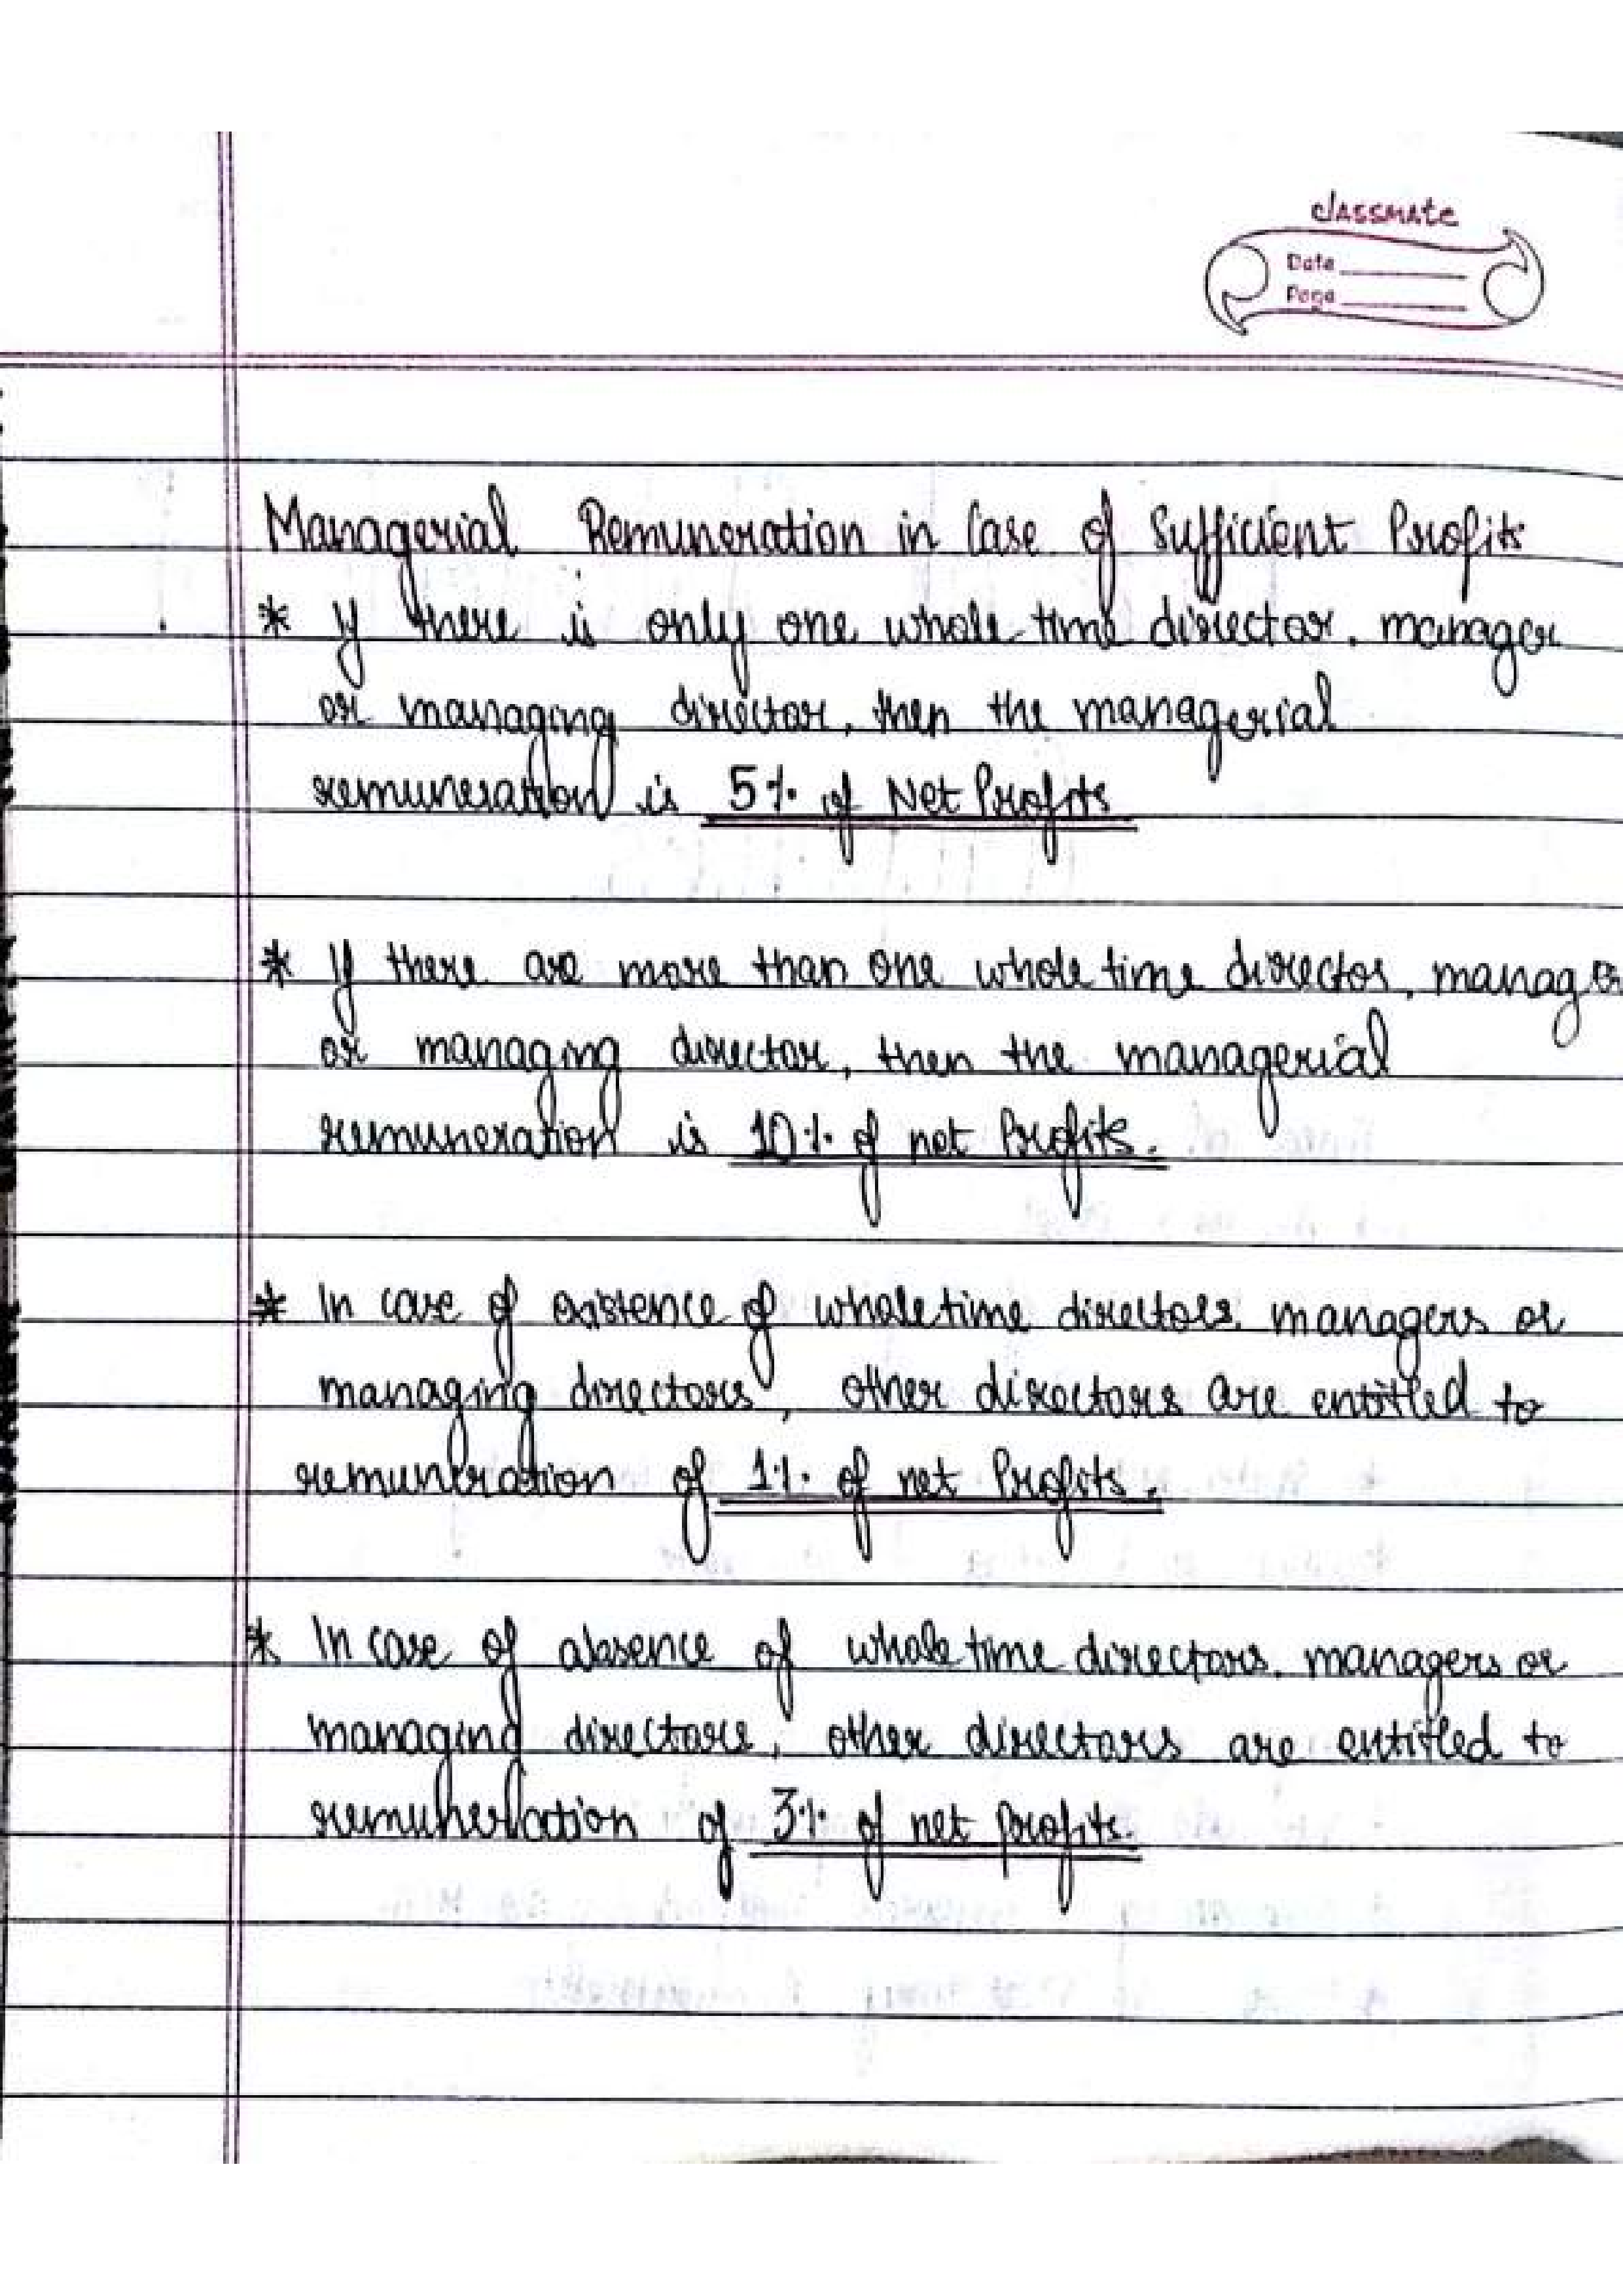 classmate
Date
Page
Managerial Remuneration in Case of Sufficient Profits
* If there is only one whole time director, manager
or managing director, then the managerial
remuneration is 5% of Net Profits
* If there are more than one whole time director, manager
or managing director, then the managerial
remuneration is 10% of net Profits.
* In case of existence of whole time directors, managers or
managing directors, other directors are entitled to
remuneration of 1% of net Profits.
* In case of absence of whole time directors, managers or
managing directors, other directors are entitled to
remuneration of 3% of net profits.